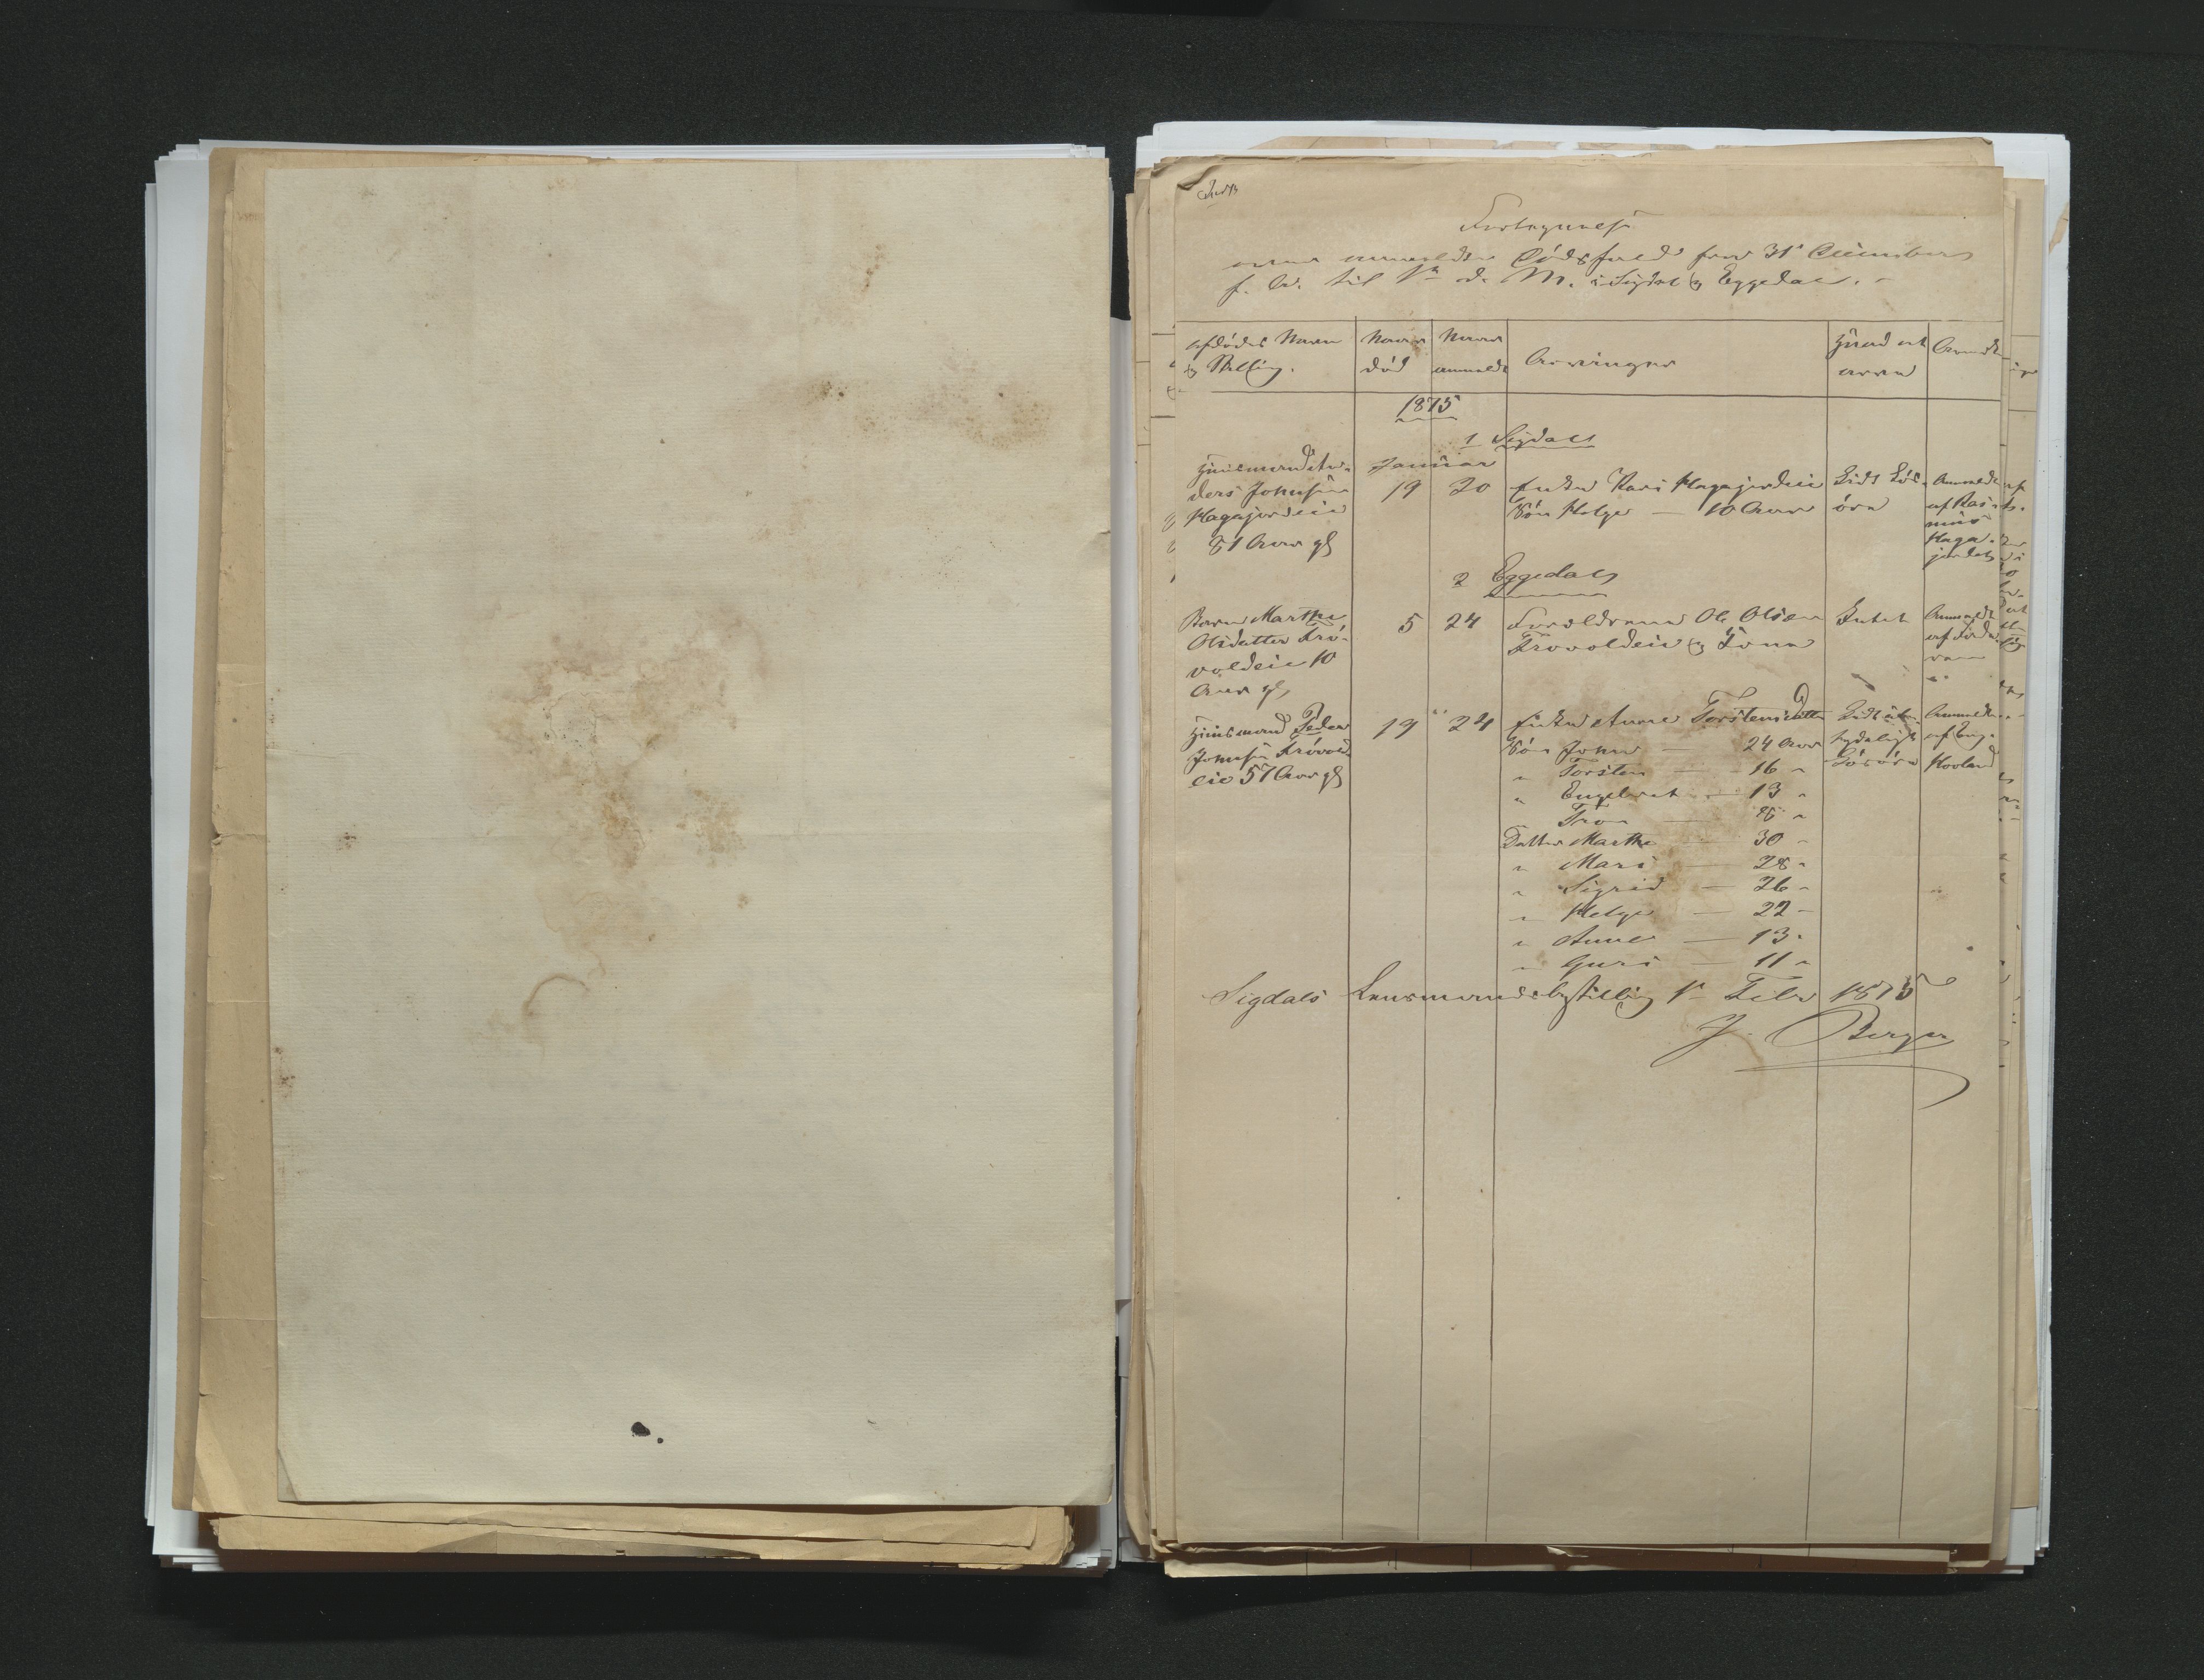 Fortegnelse
over anmeldte Dödsfald fra 31te December
f. A. til 1ste d. M. i Sigdal og Eggedal.
Afdødes Navn
& Stilling.
Naar
död
Naar
anmeldt
Arvinger
Hvad at
arve
Anmærkn
1875
1 Sigdal
Januar
Huusmand An-
ders Johnsen
Hagajordeie
81 Aar gl
19 20
Enken Kari Hagajordeie
Sön Helge — 10 Aar
Lidt Lös-
öre
Anmeldt
af Ras-
mus
Haga-
jordet
2 Eggedal
Barn Marthe
Olsdatter Trö-
voldeie 10
Aar gl,
5 24
Forældrene Ole Olsen
Trovoldeie &
Intet
Anmeldt
af Fade-
ren
Huusmand Peder
Johnsen Trövold-
eie 57 Aar gl
19 24
Enken Anne Torstensdatter
Sön John — 24 Aar
" Torsten — 16 "
" Engebret — 13 "
" Tron — 8 "
Datter Marthe — 30 "
" Mari — 28 "
" Sigrid — 26 "
" Helge — 22 "
" Anne — 13 "
" Guri — 11 "
Lidt ube-
tydeligt
Lösöre
Anmeldt
af
Hovland
Sigdals Lensmandsbestilling 1ste Febr 1875
J. Berger